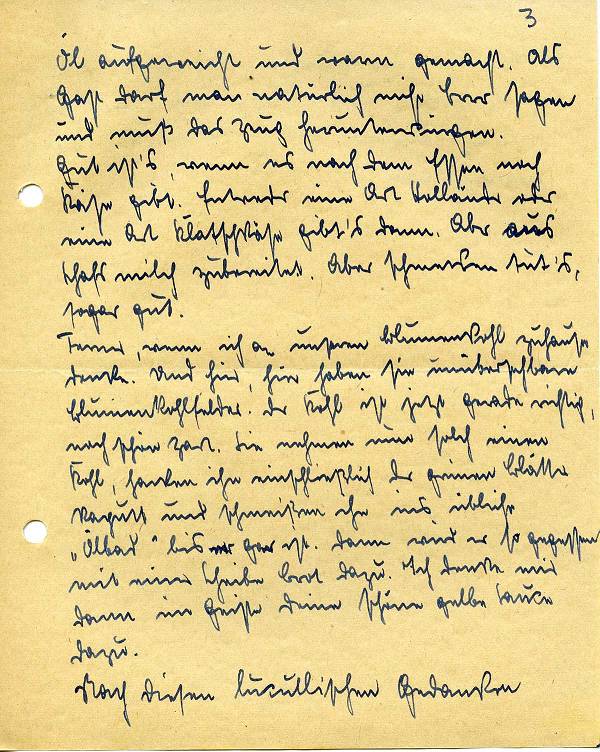 3
Öl aufgeweicht und warm gemacht. Als
Gast darf man natürlich nicht brrr sagen
und muß das Zeug herunterwürgen.
Gut ist's, wenn es nach dem Essen noch
Käse gibt. Entweder eine Art Holländer oder
eine Art Klatschkäse gibt's dann. Aber aus
Schafsmilch zubereitet. Aber schmecken tut's,
sogar gut.
Ferner, wenn ich an unseren Blumenkohl zuhause
denke. Und hier, hier haben sie unübersehbare
Blumenkohlfelder. Der Kohl ist jetzt gerade richtig,
noch schön zart. Sie nehmen nun solch einen
Kohl, hacken ihn einschließlich der grünen Blätter
kaputt und schmeißen ihn ins übliche
„Ölbad" bis er gar ist. Dann wird er so gegessen
mit einer Scheibe Brot dazu. Ich denke mir
dann im Geiste Deine schöne gelbe Sauce
dazu.
Nach diesen lucullischen Gedanken